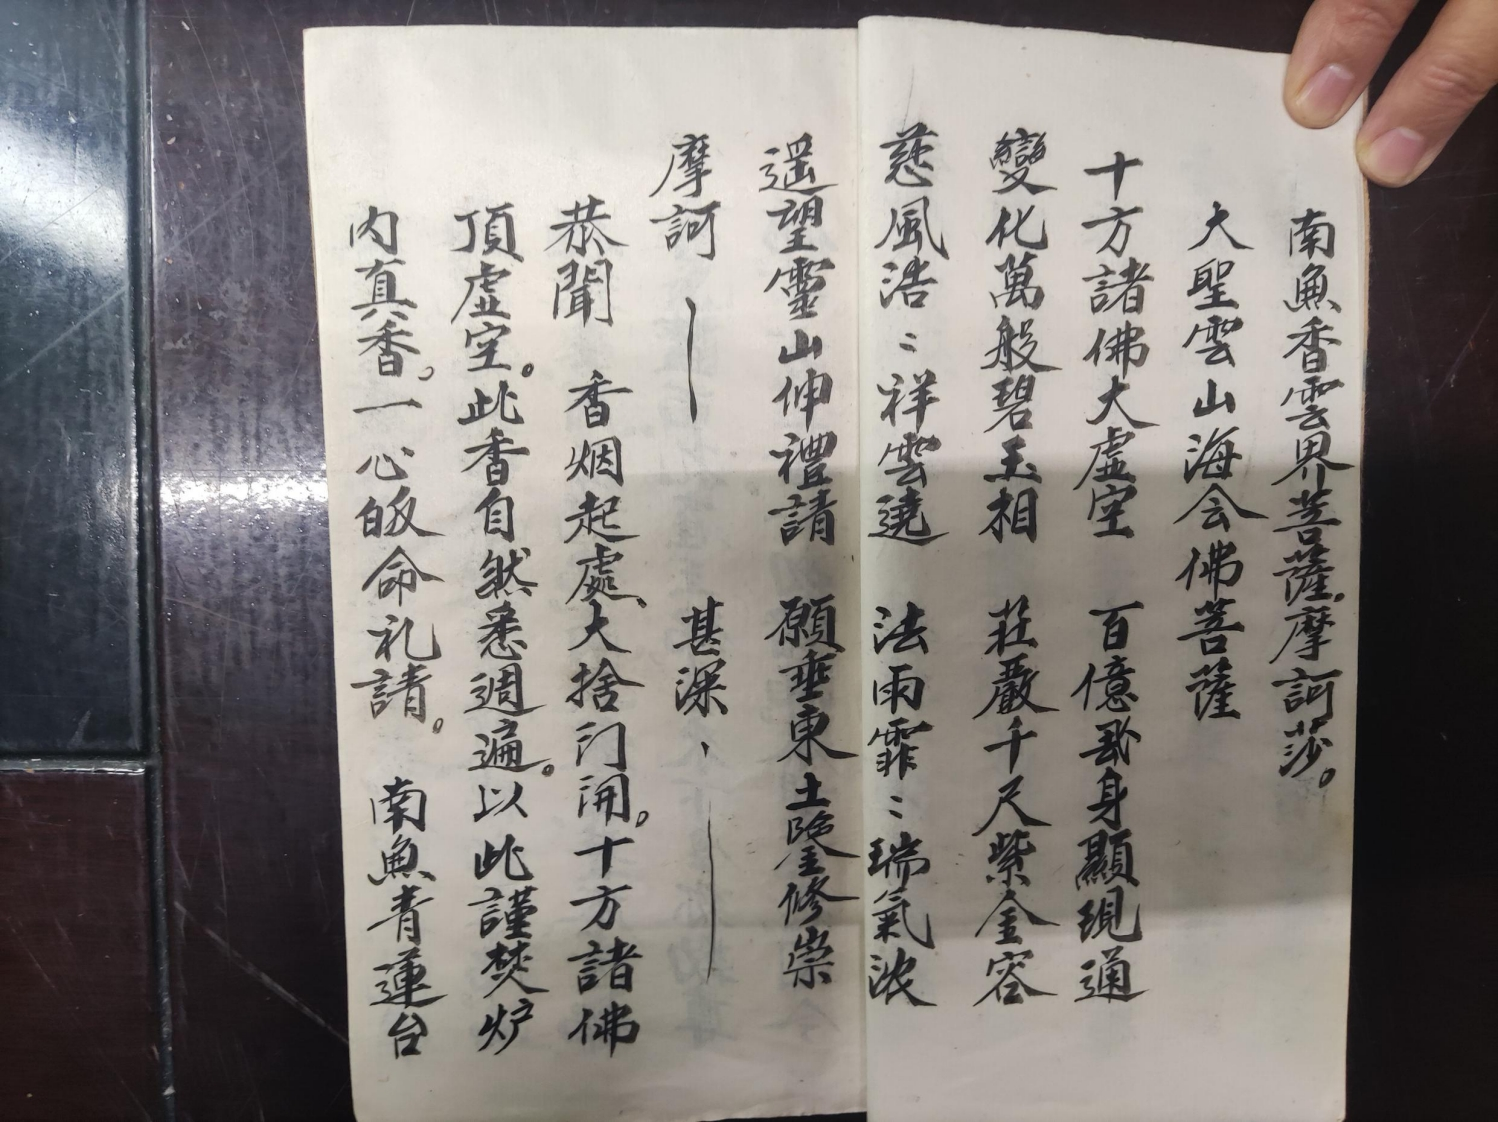 南無香雲界菩薩。摩訶莎。
大聖雲山海会佛菩薩
十方諸佛大虛空 百億身顯現通
變化萬般碧玉相 莊嚴千尺紫金容
慈風浩〻祥雲遶 法雨霏〻瑞氣浓
遥望靈山伸禮請 願垂東土鑒修崇
摩訶 甚深、
恭聞 香烟起處、大捨门開。十方諸佛
頂虛空。此香自然悉週遍。以此謹焚炉
内真香。一心皈命礼請。 南無青蓮台